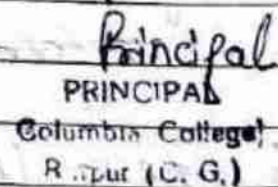 Principal
PRINCIPAL
Columbia College
(C. G.)